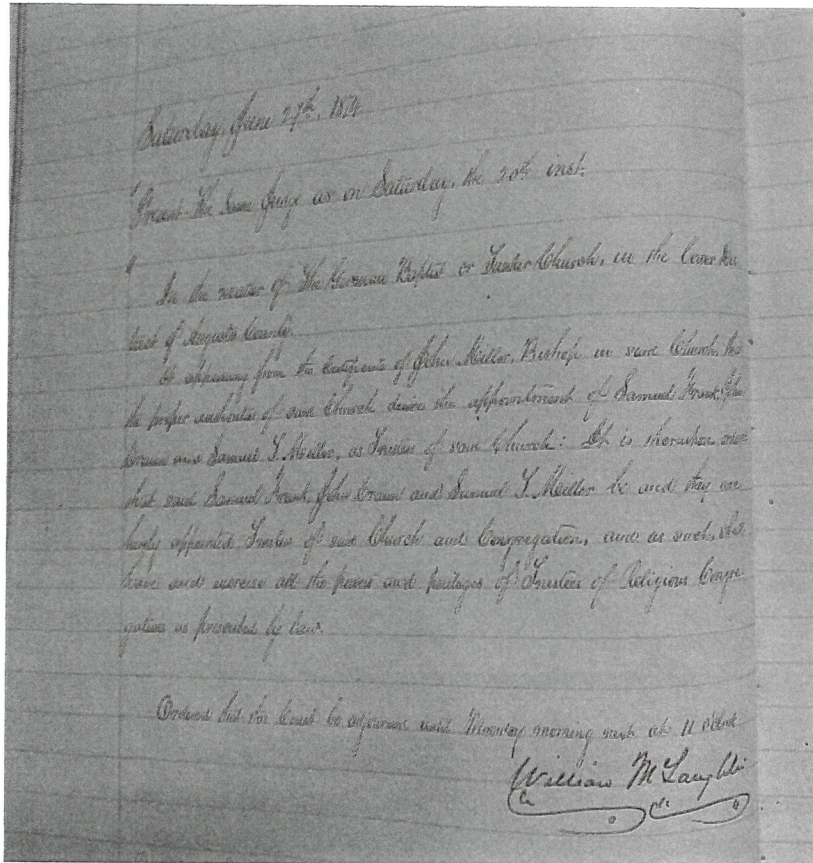 Saturday, June 27th, 1874
Present the same Judge as on Saturday, the 20th inst.
In the matter of The German Baptist or Tunker Church, in the lower Dis
trict of Augusta County.
It appearing from the Certificate of John Miller, Bishop in said Church, that
the proper authorities of said Church desire the appointment of Samuel Frank, John
and Samuel S. Miller, as Trustees of said Church: It is therefore
that said Samuel Frank, John and Samuel S. Miller be and they are
hereby appointed Trustees of said Church and Congregation, and as such, shall
have and exercise all the powers and privileges of Trustees of Religious Congre
gations as prescribed by law.
Ordered that the Court be adjourned until Monday morning next at 11 o'clock
William McLaughlin